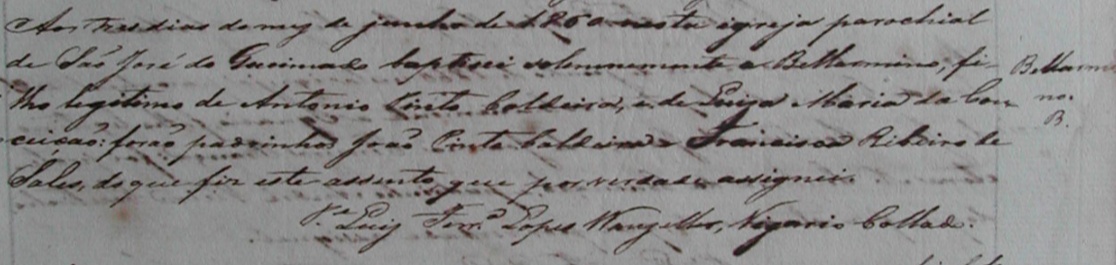 Aos tres dias do mez de junho de 1860 nesta igreja parochial
de São José do Queimado baptisei solemnemente a Bellarmino, fi-
lho legitimo de Antonio Pinto Caldeira, e de Luiza Maria da Con-
ceição: forão padrinhos João Pinto Caldeira e Francisca Ribeiro de
Sales, do que fiz este assento, que por verdade assignei.
Pe. Luiz Lopes Vigario Collado.
Bellarmi
no.
B.